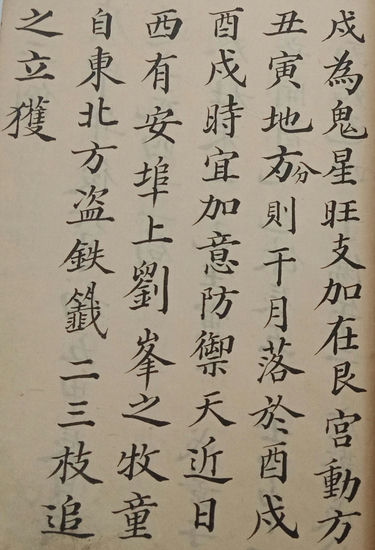 戍為鬼星旺支加在艮宮動方
丑寅地方分則干月落於酉戍
酉戍時宜加意防禦天近日
西有安埠上劉峯之牧童
自東北方盗鉄籤二三枝追
之立獲